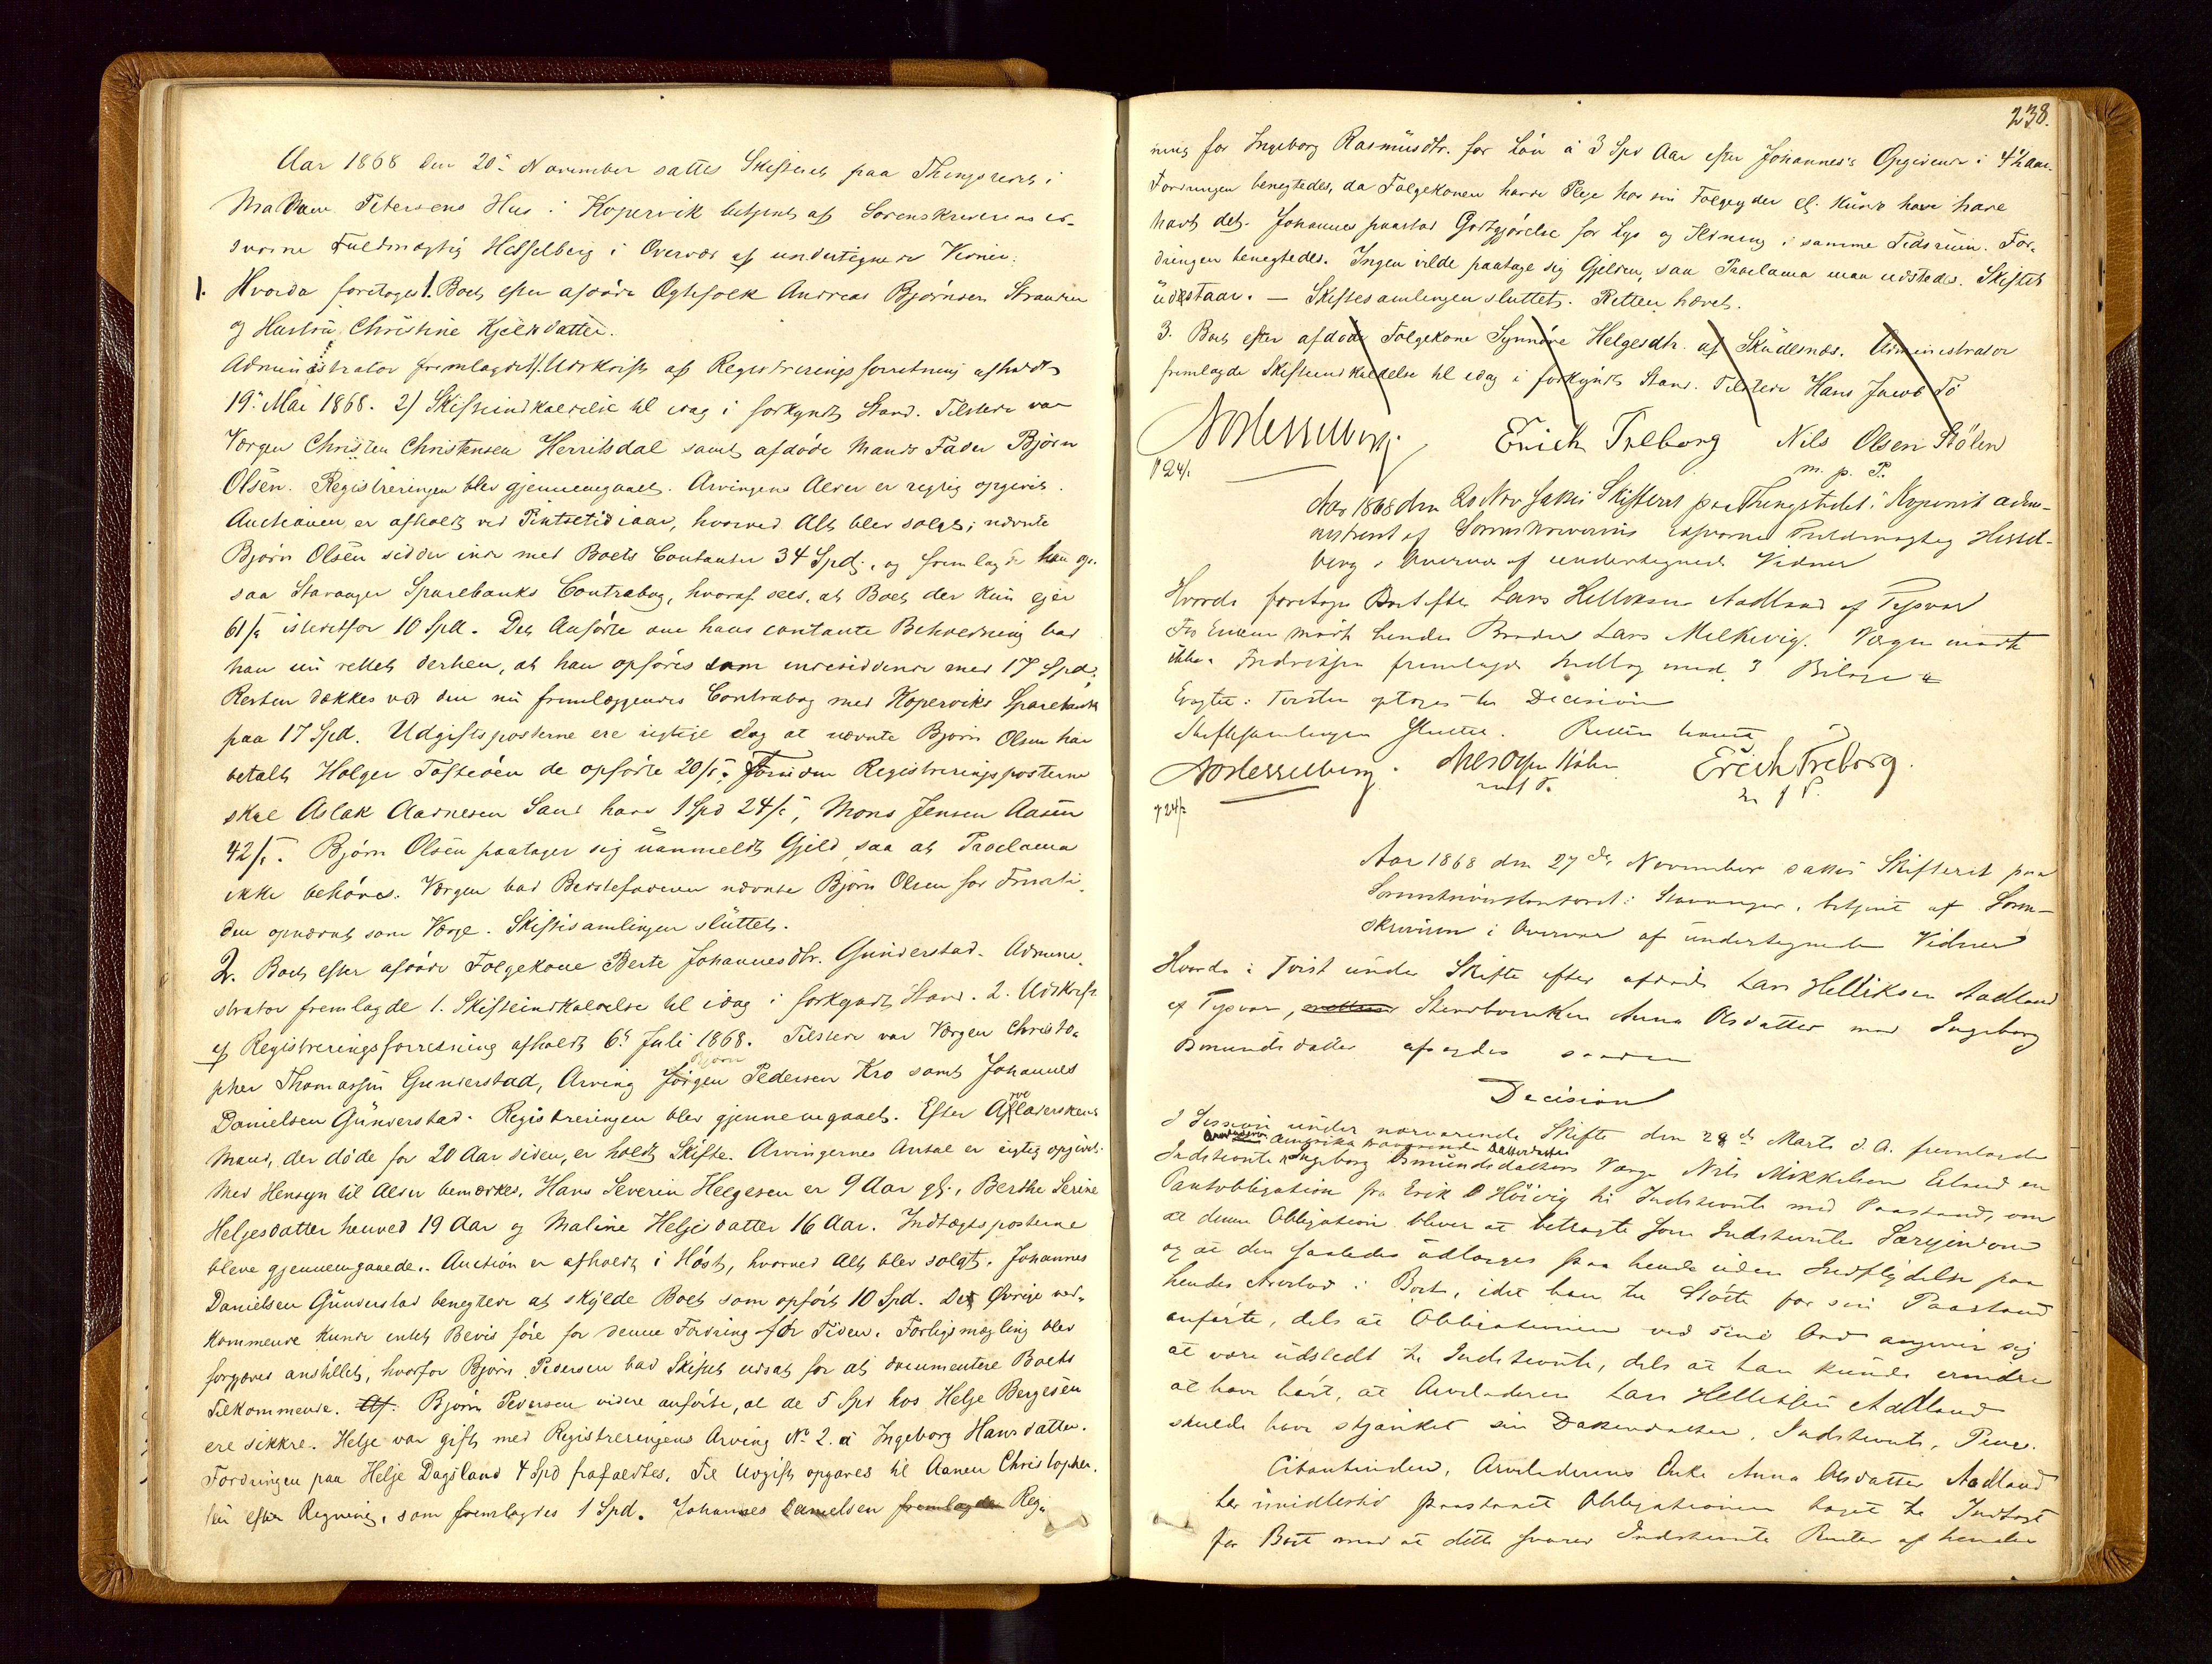 Aar 1868 den 20de November sattes Skifteret paa Thingstedet i
Madam Petersens Hus i Kopervik betjent af Sorenskriverens ed-
svorne Fuldmægtig Hesselberg i Overvær af undertegnede Vidner:
1. Hvorda foretoges 1. Boet efter afdøde Ægtefolk Andreas Bjørnsen Stranden
og Hustru Christine Kjeldsdatter.
Administrator fremlagde 1/. Udskrift af Registreringsforretning afholdt
19de Mai 1868. 2/ Skifteindkaldelse til idag i forkyndt Stand. Tilstede var
Værgen Christen Christensen Herritsdal samt afdøde Mands Fader Bjørn
Olsen. Registreringen blev gjennemgaaet. Arvingens Alder er rigtig opgivet.
Auctionen er afholdt ved Pintsetid iaar, hvorved Alt blev solgt; nævnte
Bjørn Olsen sidder inde med Boets Contanter 34 Spd., og fremlagde han og-
saa Stavanger Sparebanks Contrabog, hvoraf sees, at Boet der kun ejer
61 /s istedetfor 10 Spd. Det Anførte om hans contante Beholdning bad
han nu rettet derhen, at han opføres som indesiddende med 17 Spd;
Resten dækkes ved den nu fremlæggendes Contrabog med Koperviks Sparebank
paa 17 Spd. Udgiftsposterne ere rigtige dog at nævnte Bjørn Olsen har
betalt Holger Tostesen de opførte 20 /s. Foruden Registreringsposterne
skal Aslak Aadnesen Sand have 1 Spd 24 /s, Mons Jensen Aasen
42 /s. Bjørn Olsen paatager sig uanmeldt Gjeld, saa at Proclama
ikke behøves. Værgen bad Bedstefaderen nævnte Bjørn Olsen for Fremti-
den opnævnt som Værge. Skiftesamlingen sluttet.
2. Boet efter afdøde Folgekone Berte Johannesdtr. Gunderstad. Admini-
strator fremlagde 1. Skifteindkaldelse til idag i forkyndt Stand. 2. Udskrift
af Registreringsforretning afholdt 6te Juli 1868. Tilstede var Værgen Christo-
pher Thomassen Gunderstad, Arving Jørgen Bjørn Pedersen Kro samt Johannes
Danielsen Gunderstad. Registreringen blev gjennemgaaet. Efter Arveladerskens
Mand, der døde for 20 Aar siden, er holdt Skifte. Arvingernes Antal er rigtig opgivet.
Med Hensyn til Alder bemærkes, Hans Severin Helgesen er 9 Aar gl., Berthe Serine
Helgesdatter henved 19 Aar og Maline Helgesdatter 16 Aar. Indtægtsposterne
bleve gjennemgaaede. Auction er afholdt i Høst, hvorved Alt blev solgt. Johannes
Danielsen Gunderstad benegtede at skylde Boet som opført 10 Spd. De Øvrige ved-
kommende kunde intet Bevis føre for denne Fordring for Tiden. Forligsmægling blev
forgjæves anstillet, hvorfor Bjørn Pedersen bad Skiftet udsat for at documentere Boets
Tilkommende. Bjørn Pedersen videre anførte, at de 5 Spd hos Helge Bergesen
ere sikkre. Helje var gift med Registreringens Arving No. 2. a Ingeborg Hansdatter.
Fordringen paa Helje Dagsland 4 Spd frafaldtes. Til Udgift opgaves til Aanen Christopher-
sen efter Regning, som fremlagdes 1 Spd. Johannes Danielsen fremlagde Reg-
238.
ning for Ingeborg Rasmusdtr. for Løn à 3 Spd Aar efter Johannes's Opgivende i 4½ Aar.
Fordringen benegtedes, da Folgekonen havde Pleje hos sin Folgeyder el. kunde have have
havt det. Johannes paastod Godtgjørelse for Lys og Ildning i samme Tidsrum. For-
dringen benegtedes. Ingen vilde paatage sig Gjelden, saa Proclama maa udstedes. Skiftet
udstaar. — Skiftesamlingen sluttet. Retten hævet.
3. Boet efter afdøde Folgekone Synnøve Helgesdtr. af Skudesnæs. Administrator
fremlagde Skifteindkaldelse til idag i forkyndt Stand. Tilstede Hans Jacob Tø
Hesselberg. Erich Treborg Nils Olsen Stølen
m. p. P.
Aar 1868 den 20 Nov sattes Skifteret paa Thingstedet i Kopervik admi-
nistreret af Sorenskriverens edsvorne Fuldmægtig Hessel-
berg i Overvær af undertegnede Vidner
Hvorda foretoges Boet efter Lars Helliksen Aadland af Tysvær
For Enken mødt hendes Broder Lars Melkevig. Værgen mødte
ikke. Fredriksen fremlagde Indlæg med 3 Bilage
Tvisten optages til Decision
Skiftesamlingen sluttet. Retten hævet
Hesselberg. Nils Olsen Stølen Erich Treborg.
m. p. P.
Aar 1868 den 27de November sattes Skifteret paa
Sorenskriverkontoret i Stavanger, betjent af Soren-
skriveren i Overvær af undertegnede Vidner
Hvorda i Tvist under Skifte efter afdøde Lars Helliksen Aadland
af Tysvær, Stervboenken Anna Olsdatter mod Ingeborg
Osmundsdatter afsagdes saadan
Decision
I Session under nærværende Skifte den 28de Marts d. A. fremlagde
Amerika Datterdatter
Indstevnte Ingeborg Osmundsdatters Værge Nils Mikkelsen Eeland en
Pantobligation fra Erik O Høivig til Indstevnte med Paastand, om
at denne Obligation bliver at betragte som Indstevntes Særeiendom
og at den saaledes udlægges paa hende uden Indflydelse paa
hendes Arvelod i Boet, idet han til Støtte for sin Paastand
anførte, dels at Obligationen ved sine Ord angiver sig
at være udstedt til Indstevnte, dels at han kunde erindre
at have hørt, at Arveladeren Lars Helliksen Aadland
skulde have skjænket sin Datterdatter, Indstevnte, Penge.
Citantinden, Arveladerens Enke Anna Olsdatter Aadland
har imidlertid paastaaet Obligationen taget til Indtægt
for Boet mod at dette svarer Indstevnte Renter af hendes